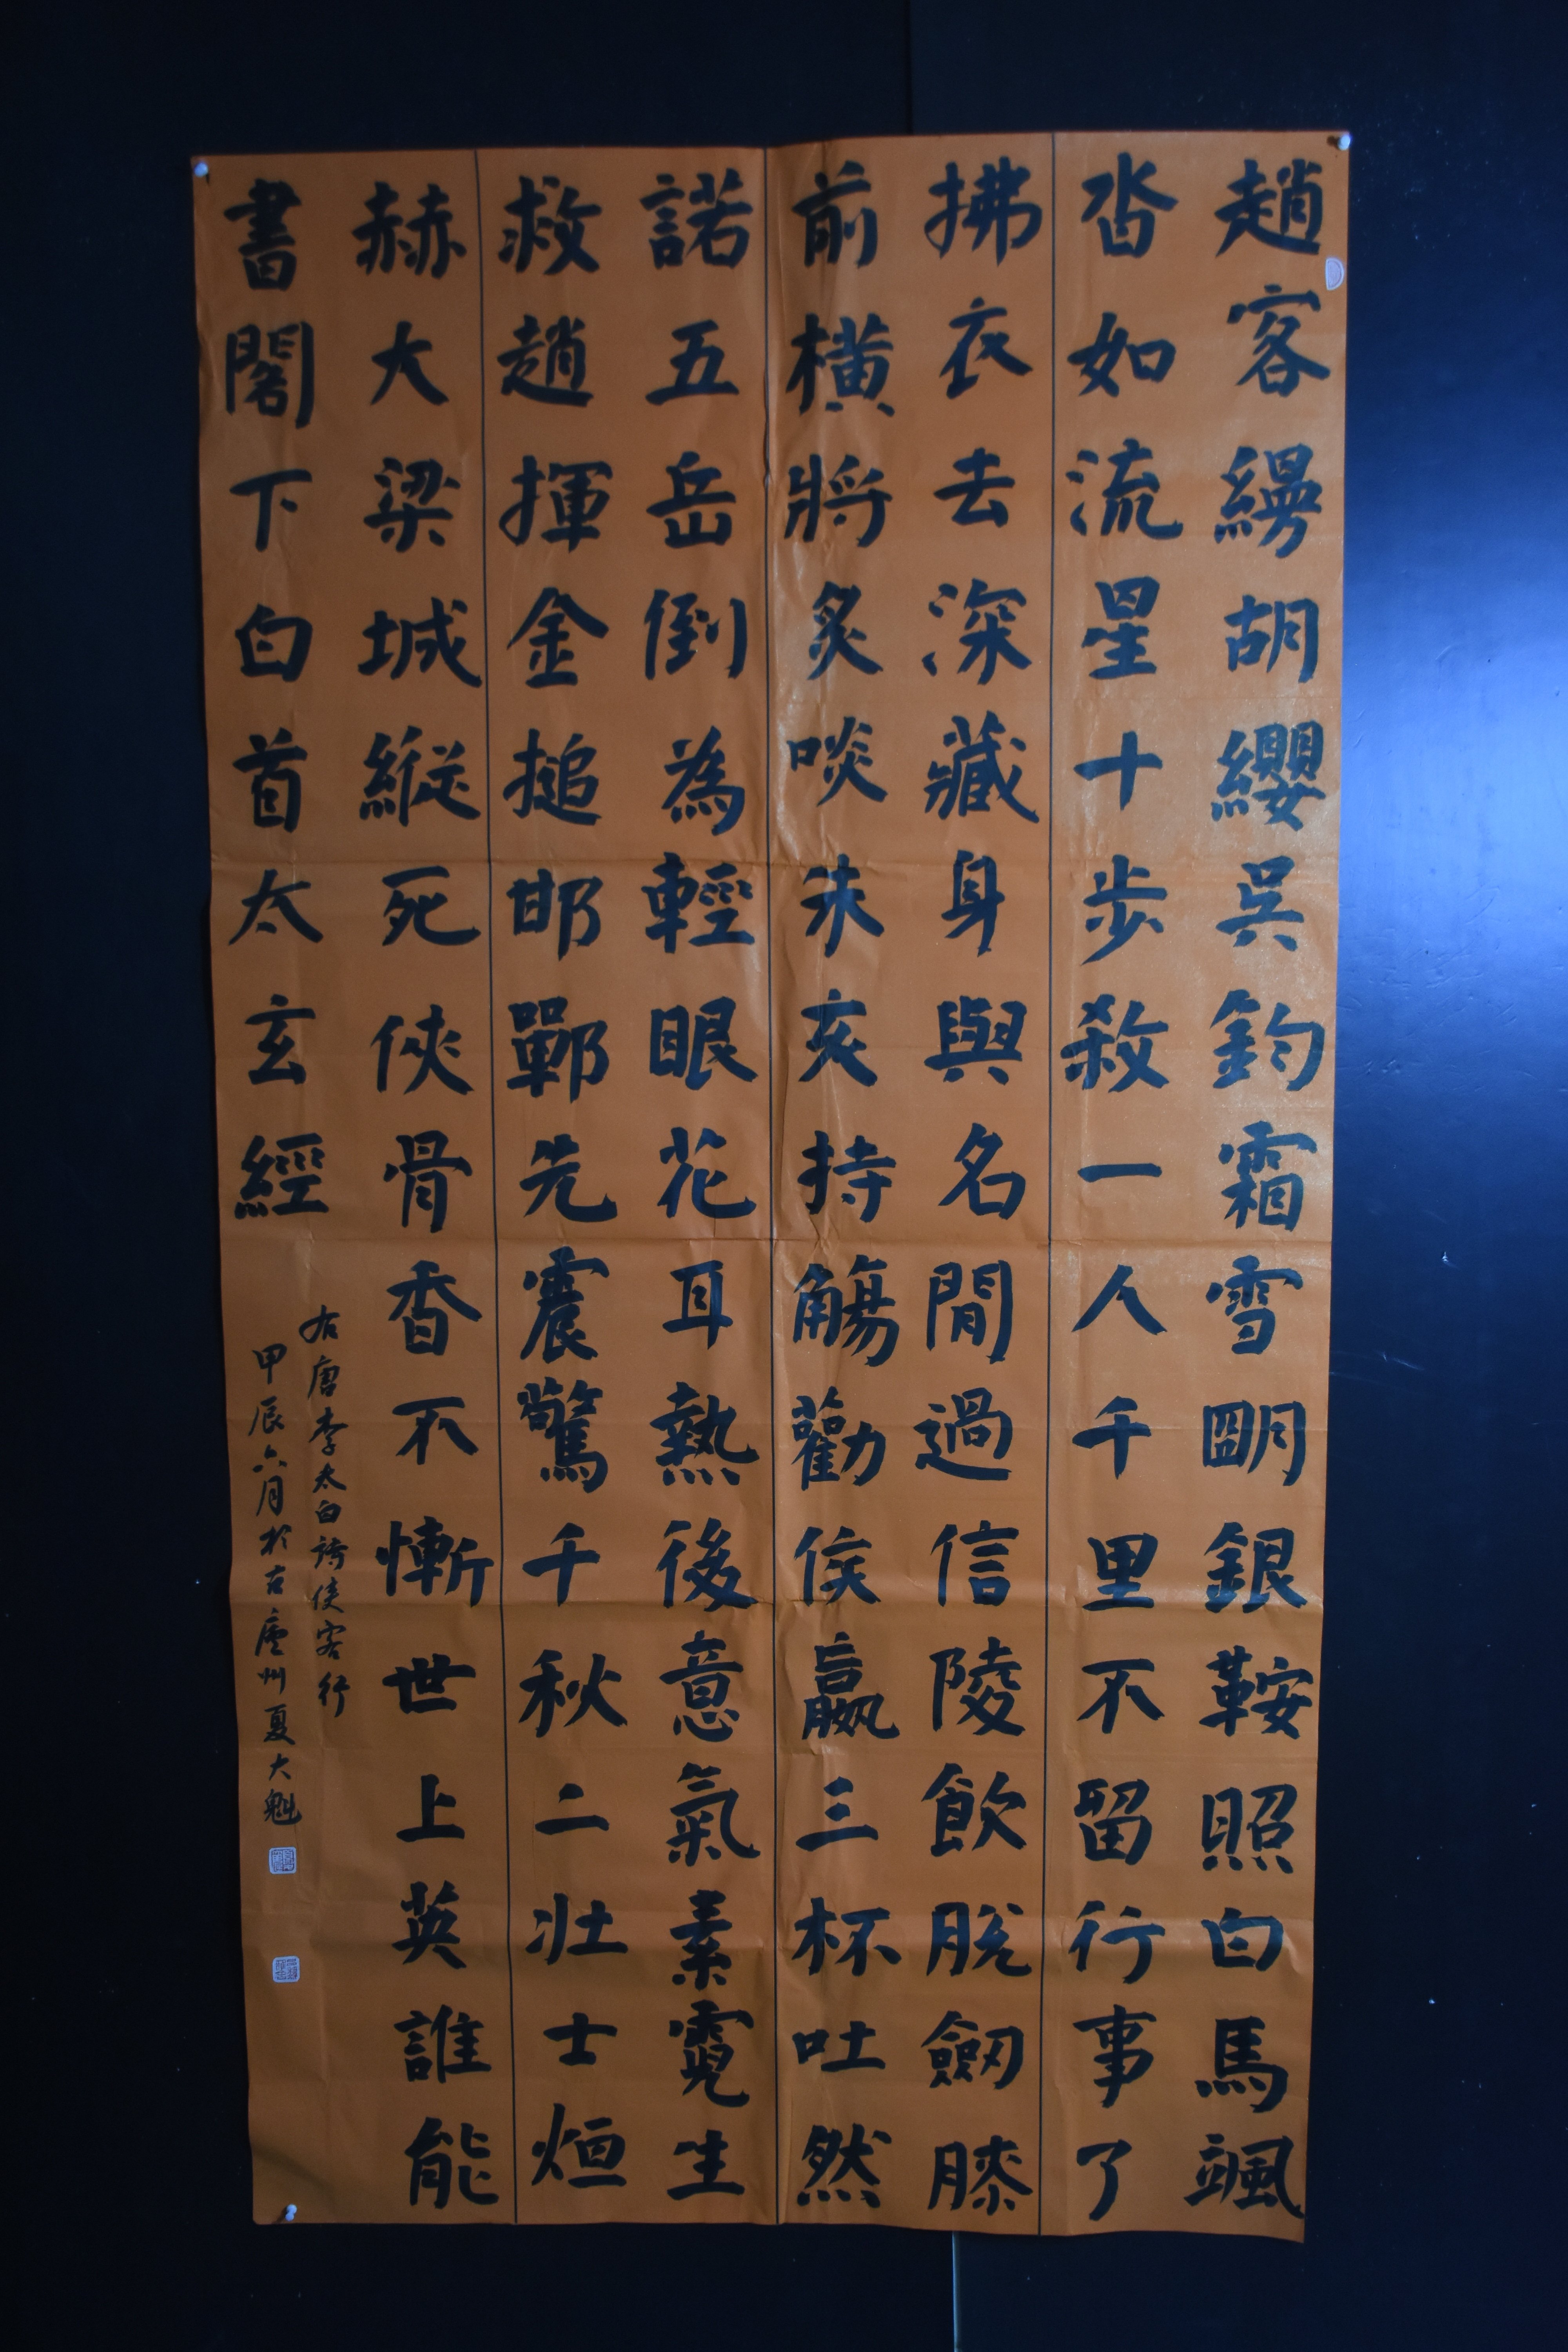 趙客縵胡纓吳鈎霜雪朙銀鞍照白馬颯
沓如流星十步殺一人千里不留行事了
拂衣去深藏身與名閒過信陵飲脫劒膝
前橫將炙啖朱亥持觴勸侯嬴三杯吐然
諾五岳倒為輕眼花耳熱後意氣素霓生
救趙揮金搥邯鄲先震驚千秋二壯士烜
赫大梁城縱死俠骨香不慚世上英誰能
書閣下白首太玄經
右唐李太白詩俠客行
甲辰六月於古廬州夏大魁